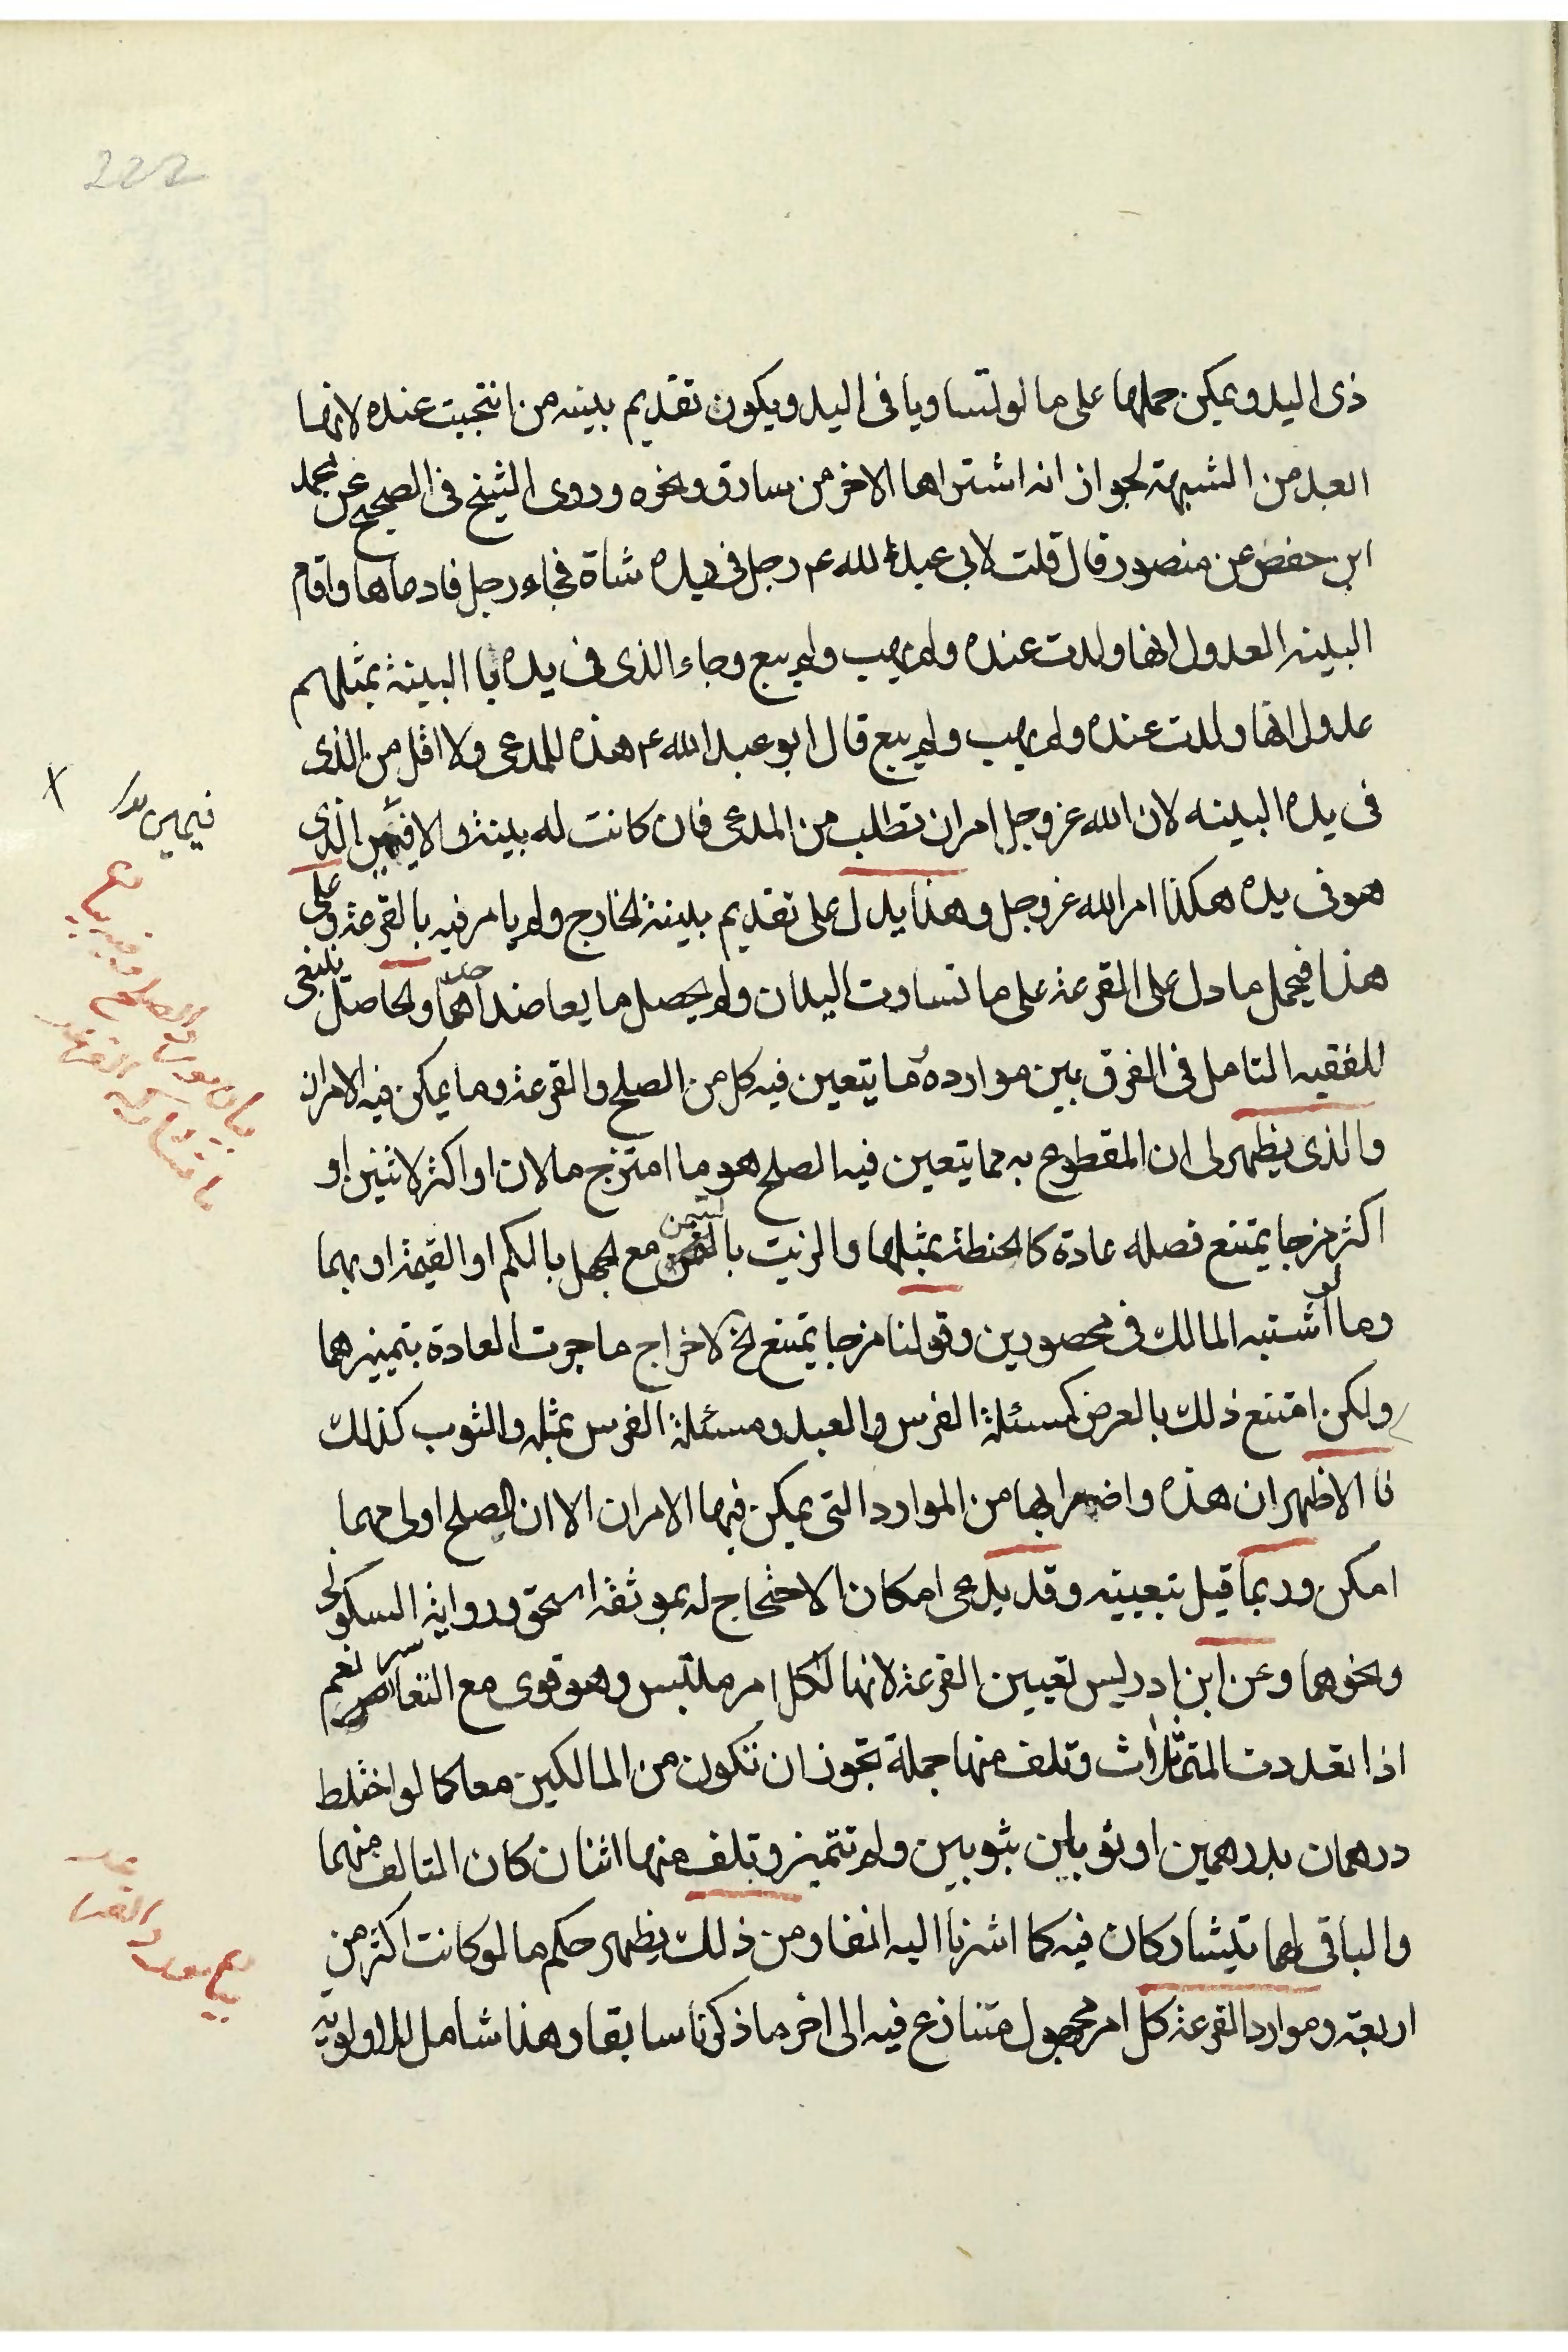 222
ذى اليد ويمكن حملها على ما لو تساويا فى اليد ويكون تقديم بينه من انتجبت عنده لانها
ابعد من الشبهة لجواز انه اشتراها الاخر من سارق ونحوه وروى الشيخ فى الصحيح عن محمد
ابن حفص عن منصور قال قلت لابى عبد الله ع رجل فى يده شاة فجاء رجل فادعاها واقام
البينه العدول انها ولدت عنده ولم يهب ولم يبع وجاء الذى فى يده با البينة بمثلهم
عدول انها ولدت عنده ولم يهب ولم يبع قال ابو عبد الله ع هذه للمدعى ولا اقل من الذى
فى يده البينه لان الله عز وجل امر ان تطلب من المدعى فان كانت له بينة والا فيمين الذى
هو فى يده هكذا امر الله عز وجل وهذا يدل على تقديم بينة الخارج ولم يامر فيه بالقرعة وعلى
هذا فيحمل ما دل على القرعة على ما تساوت اليدان ولم يحصل ما يعاضد احدهما والحاصل ينبغى
للفقيه التامل فى الفرق بين موارده مما يتعين فيه كل من الصلح والقرعة وما يمكن فيه الامران
والذى يظهر لى ان المقطوع به مما يتعين فيه الصلح هو ما امتزج مالان او اكثر لاثنين او
اكثر مزجا يمتنع فصله عادة كالحنطة بمثلها والزيت بالسمن مع الجهل بالكم او القيمة او بهما
وما لو اشتبه المالك فى محصورين وقولنا مزجا يمتنع الخ لاخراج ما جرت العادة بتمييزهما
ولكن امتنع ذلك بالعرض كمسئلة الفرس والعبد ومسئلة الفرس بمثله والثوب كذلك
فا الاظهر ان هذه واضرابها من الموارد التى يمكن فيها الامران الا ان الصلح اولى مهما
امكن وربما قيل بتعيينه وقد يدعى امكان الاحتجاج له بموثقة اسحق ورواية السكونى
ونحوهما وعن ابن ادريس تعيين القرعة لانها لكل امر ملتبس وهو قوى مع التعاسر نعم
اذا تعددت المتماثلات وتلف منها جملة تجوز ان تكون من المالكين معا كما لو اختلط
درهمان بدرهمين او ثوبين بثوبين ولم تتميز وتلف منها اثنان كان التالف منهما
والباقى لهما يتشاركان فيه كما اشرنا اليه انفا ومن ذلك يظهر حكم ما لو كانت اكثر من
اربعة وموارد القرعة كل امر مجهول متنازع فيه الى اخر ما ذكرنا سابقا وهذا شامل للاولوية
فيمين